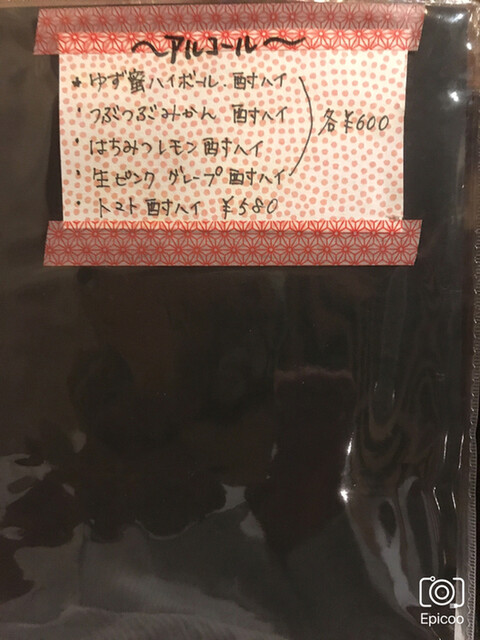 ～アルコール～
・ゆず蜜ハイボール・酎ハイ
・つぶつぶみかん 酎ハイ
・はちみつレモン酎ハイ
・生ピンク グレープ酎ハイ
各¥600
・トマト酎ハイ ¥580
Epicoo